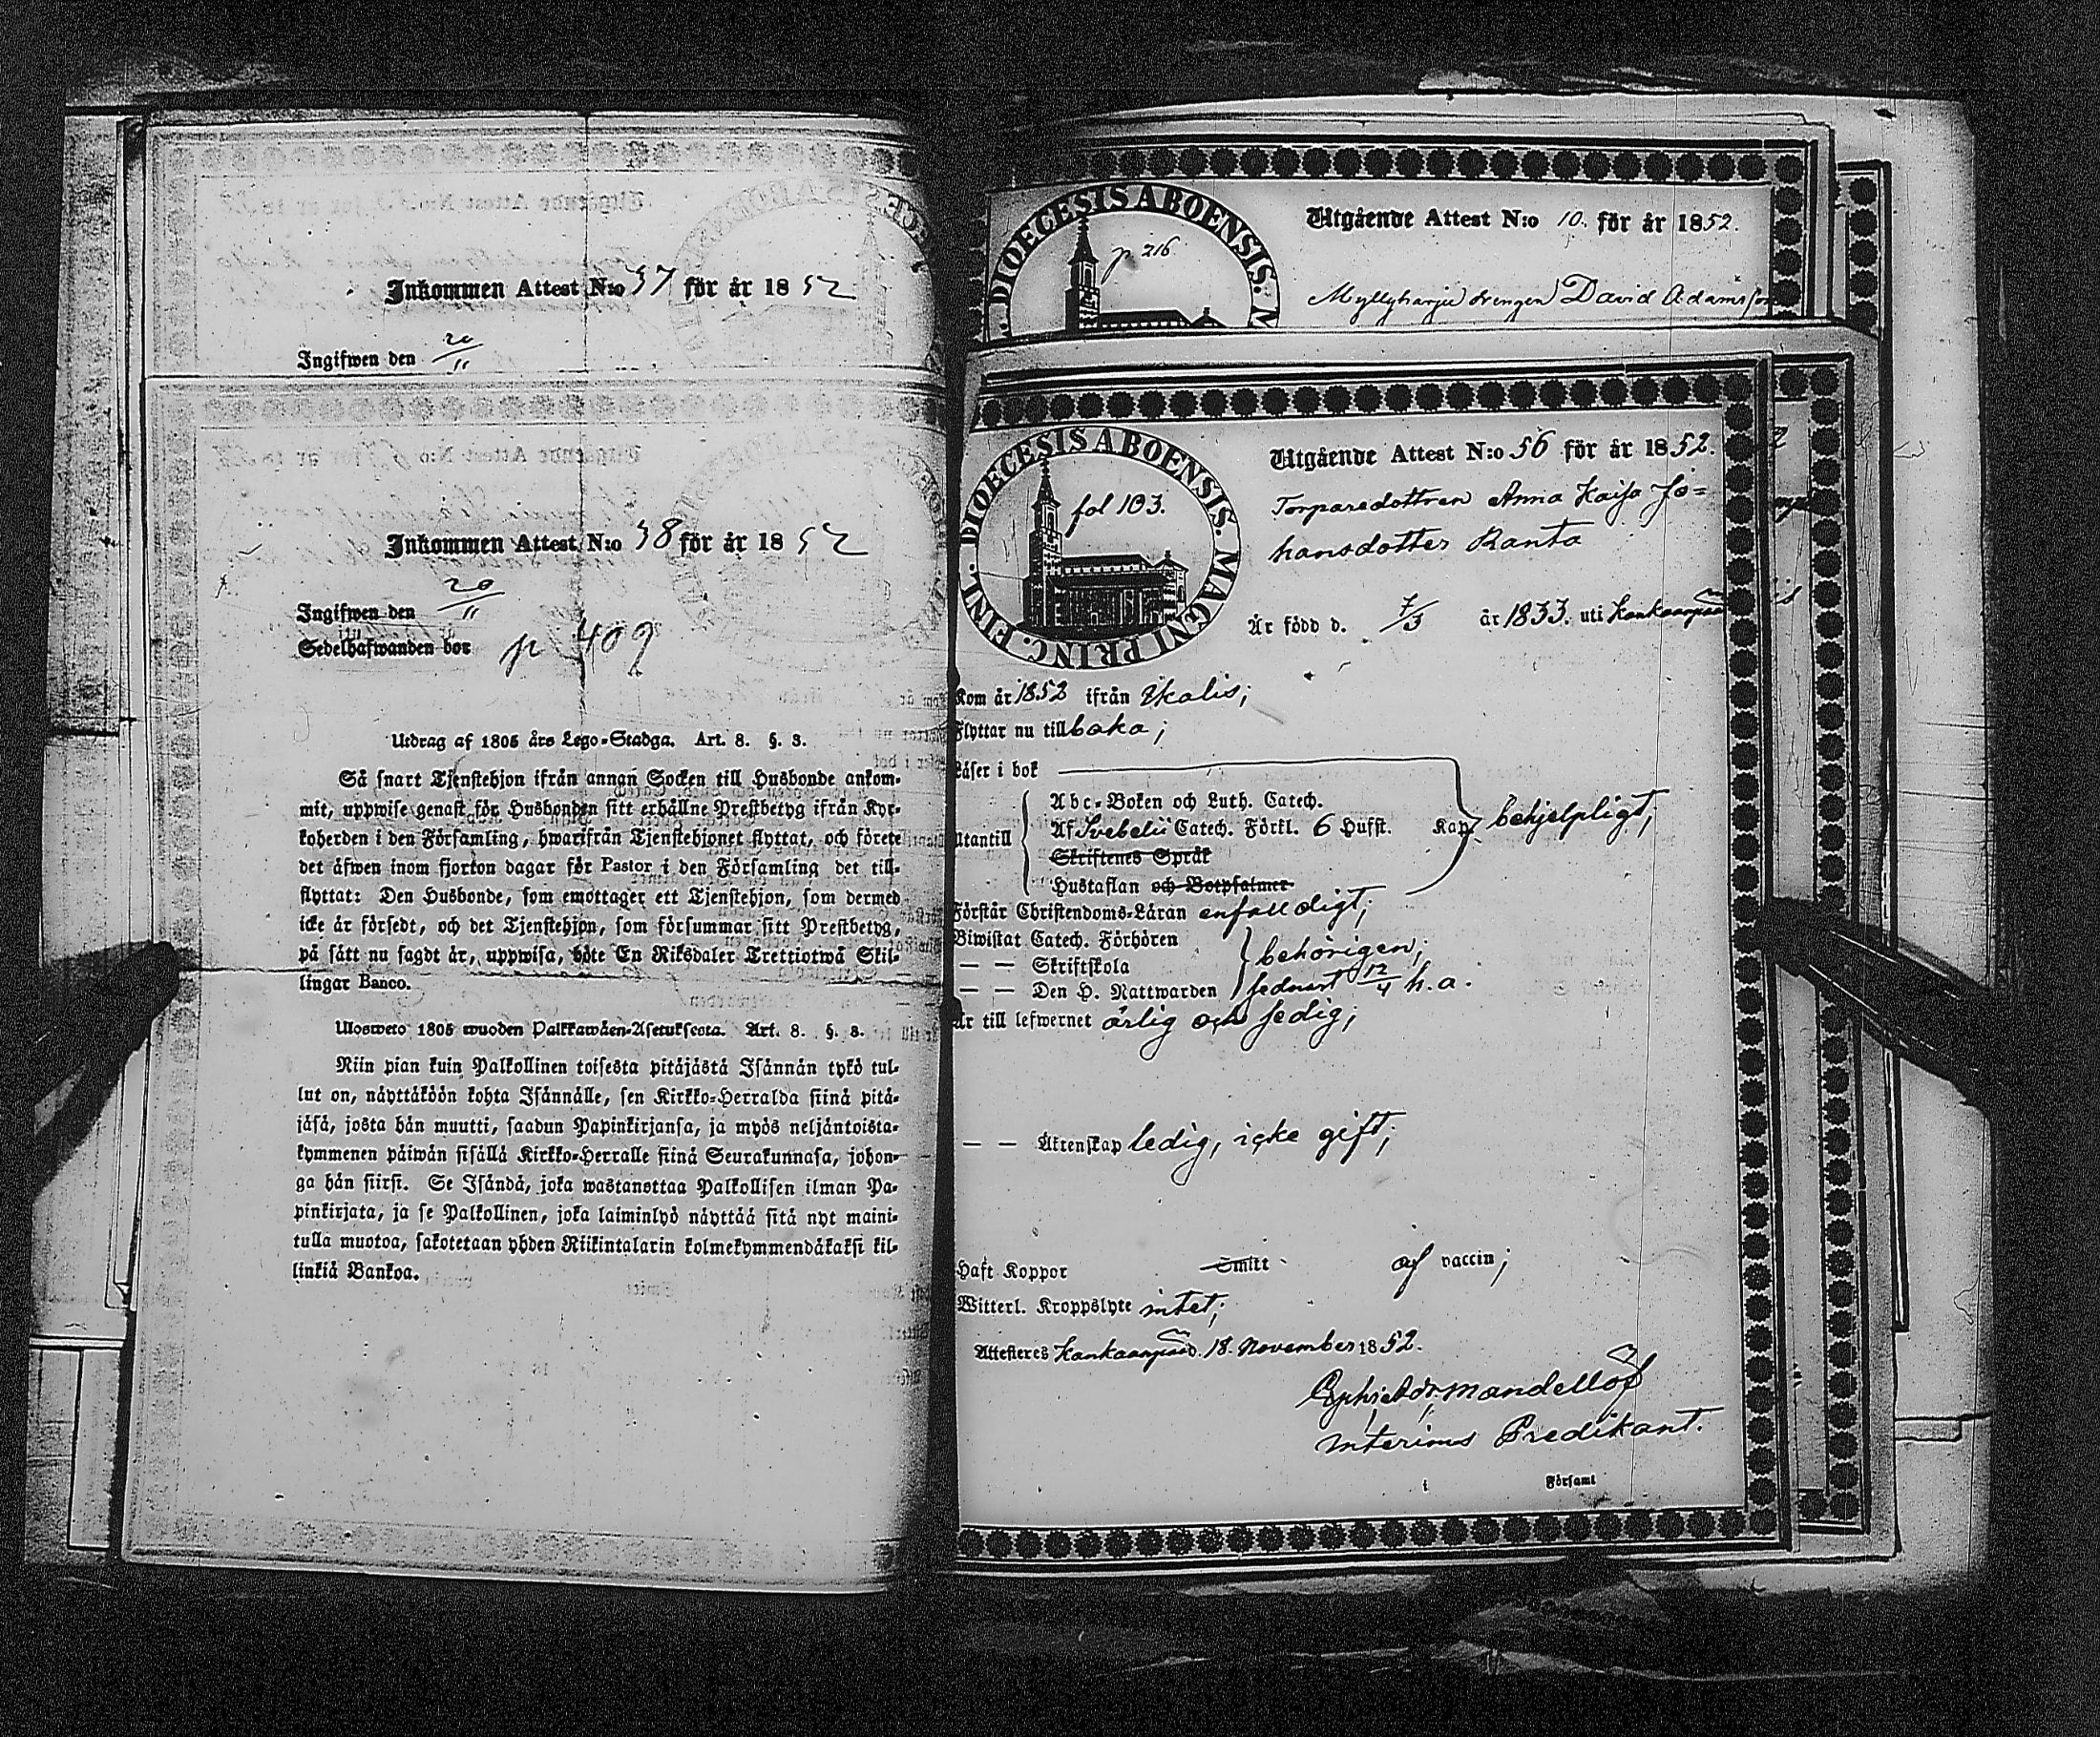 Inkommen Attest N:o 37 för år 1852
Ingifwen den 20/11
Inkommen Attest N:o 38 för år 1852
Ingifwen den 20/11
Sedelhafwanden bor p 409
Utdrag af 1805 års Lego-Stadga. Art. 8. §. 3.
Så snart Tjenstehjon ifrån annan Socken till Husbonde ankom-
mit, uppwise genast för Husbonden sitt erhållne Prestbetyg ifrån Kyr-
koherden i den Församling, hwarifrån Tjenstehjonet flyttat, och förete
det äfwen inom fjorton dagar för Pastor i den Församling det till-
flyttat: Den Husbonde, som emottager ett Tjenstehjon, som dermed
icke är försedt, och det Tjenstehjon, som försummar sitt Prestbetyg,
på sätt nu sagdt är, uppwisa, böte En Riksdaler Trettiotwå Skil-
lingar Banco.
Ulosweto 1805 wuoden Palkkawäen-Asetuksesta. Art. 8. §. 3.
Niin pian kuin Palkollinen toisesta pitäjästä Isännän tykö tul-
lut on, näyttäköön kohta Isännälle, sen Kirkko-Herralda siinä pitä-
jäsä, josta hän muutti, saadun Papinkirjansa, ja myös neljäntoista-
kymmenen päiwän sisällä Kirkko-Herralle siinä Seurakunnasa, johon-
ga hän siirsi. Se Isändä, joka wastanottaa Palkollisen ilman Pa-
pinkirjata, ja se Palkollinen, joka laiminlyö näyttää sitä nyt maini-
tulla muotoa, sakotetaan yhden Riikintalarin kolmekymmendäkaksi kil-
linkiä Bankoa.
DIOECESIS ABOENSIS. M
p. 216
Utgående Attest N:o 10. för år 1852.
Myllyharju drengen David Adamsson
DIOECESIS ABOENSIS. MAGNI PRINC. FINL.
fol 103.
Utgående Attest N:o 56 för år 1852.
Torparedottren Anna Kaisa Jo=
hansdotter Ranta
Är född d. 7/3 år 1833. uti Kankaanpää
Kom år 1852 ifrån Ikalis;
Flyttar nu tillbaka;
Läser i bok
Abc-Boken och Luth. Catech.
Utantill Af Svebelii Catech. Förkl. 6 Hufst. Kap. behjelpligt;
Skriftenes Språk
Hustaflan och Botpsalmer
Förstår Christendoms-Läran enfalldigt;
Biwistat Catech. Förhören
— — Skriftskola behörigen;
— — Den H. Nattwarden sednast 12/4 h. a.
Är till lefwernet ärlig och sedig;
— — Äktenskap ledig, icke gift;
Haft Koppor Smitt af vaccin;
Witterl. Kroppslyte intet;
Attesteres Kankaanpää d. 18. November 1852.
Mandellöf
Interims Predikant.
i Församl